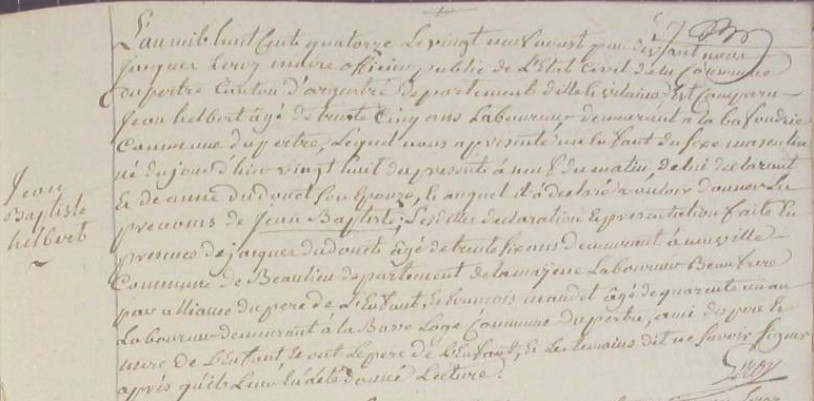 L'an mil huit Cent quatorze Le vingt neuf aoust par devant nous
jaques Leroy maire officier public de L'Etat Civil de la Commune
du pertre Canton d'argentré departement d'ille et vilaine, Est Comparu
Jean helbert âgé de trente Cinq ans Laboureur demeurant à la
Commune du pertre, Lequel nous a presenté un Enfant du sexe masculin
né du jour d'hier vingt huit du present à neuf du matin, de lui declarant
Et de anne du douet Son Epouze, Et auquel il a declaré vouloir donner Les
prenoms de Jean Baptiste; Les dittes declaration Et presentation faite En
presence de jacques du douet âgé de trente six ans demeurant à neuville
Commune de Beaulieu departement de la mayene Laboureur Beau frere
par alliance du pere de L'Enfant, Et francois mandet âgé de quarente un an
Laboureur demeurant à la Basse Loge Commune du pertre, ami du pere Et
mere de L'Enfant Et ont Le pere de L'Enfant, Et Les temoins dit ne Savoir Signer
après qu'il Leur En a été donné Lecture.
Leroy
Jean
Baptiste
helbert